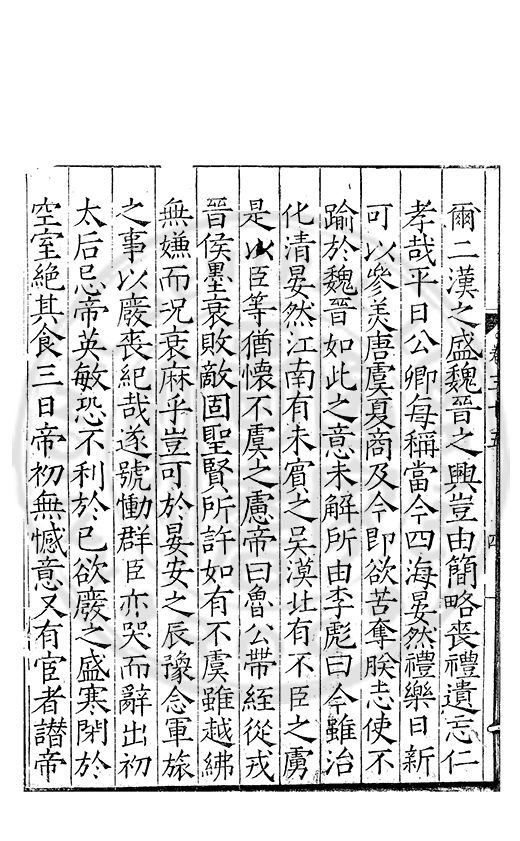 爾二漢之盛魏晉之興豈由簡略喪禮遺忘仁
孝哉平日公卿每稱當今四海晏然禮樂日新
可以參美唐虞夏商及今即欲苦奪朕志使不
踰於魏晉如此之意未解所由李彪曰今雖治
化清晏然江南有未賓之吳漠北有不臣之虜
是以臣等猶懷不虞之慮帝曰魯公帶絰從戎
晉侯墨衰敗敵固聖賢所許如有不虞雖越紼
無嫌而況衰麻乎豈可於晏安之辰豫念軍旅
之事以廢喪紀哉遂號慟群臣亦哭而辭出初
太后忌帝英敏恐不利於己欲廢之盛寒閉於
空室絶其食三日帝初無憾意又有宦者譖帝
卷三十五
四